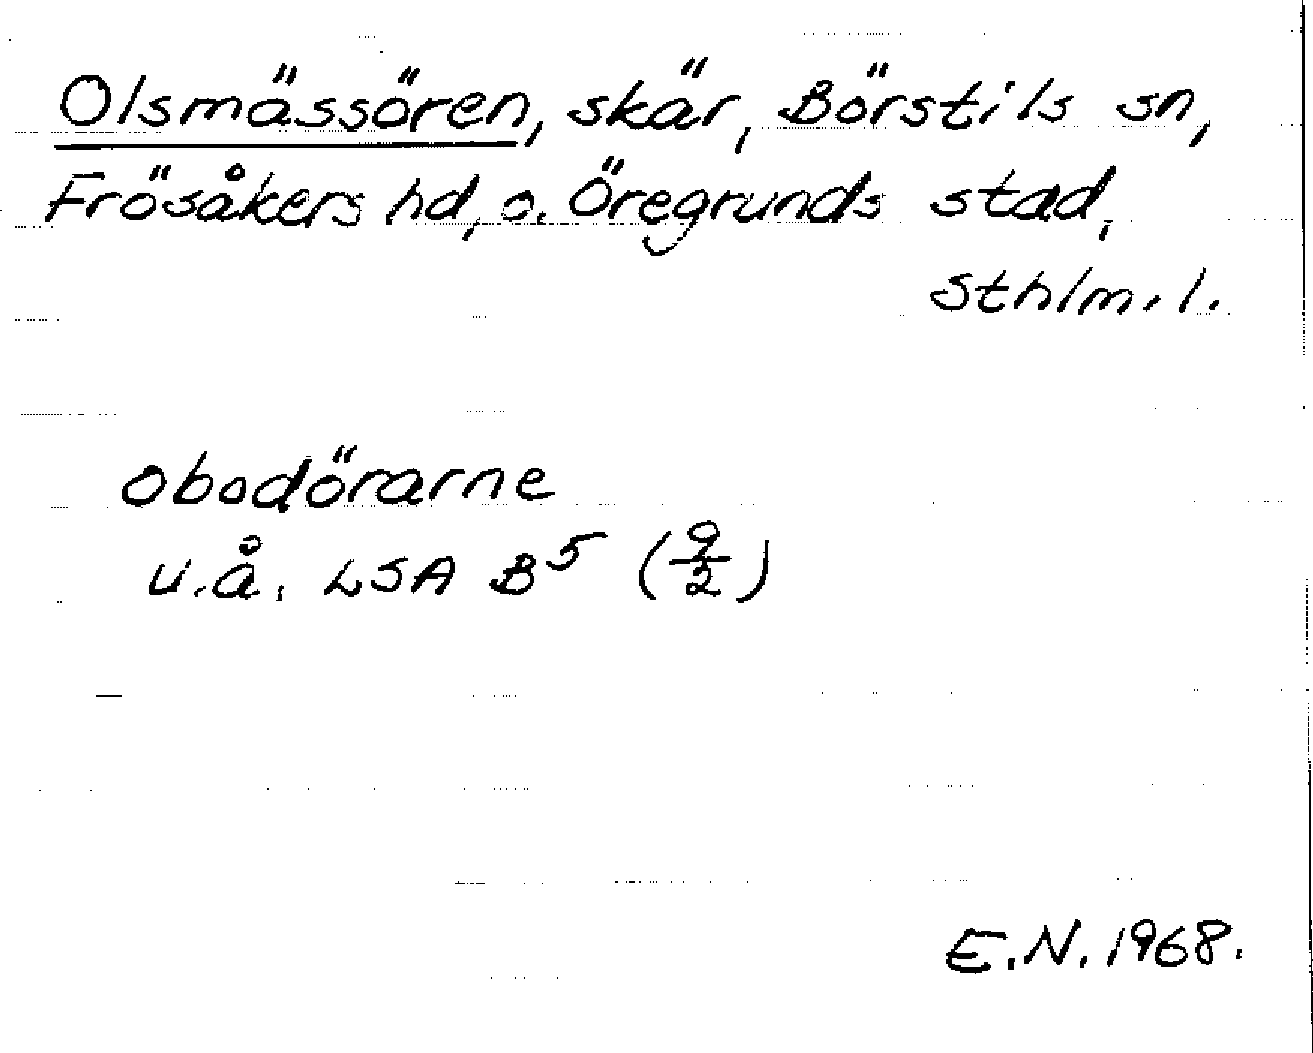 Olsmässören, skär, Börstils sn,
Frösåkers hd, o. Öregrunds stad,
Sthlm. l.
obodörarne
u.å. LSA B⁵ (9/2)
E.N. 1968.